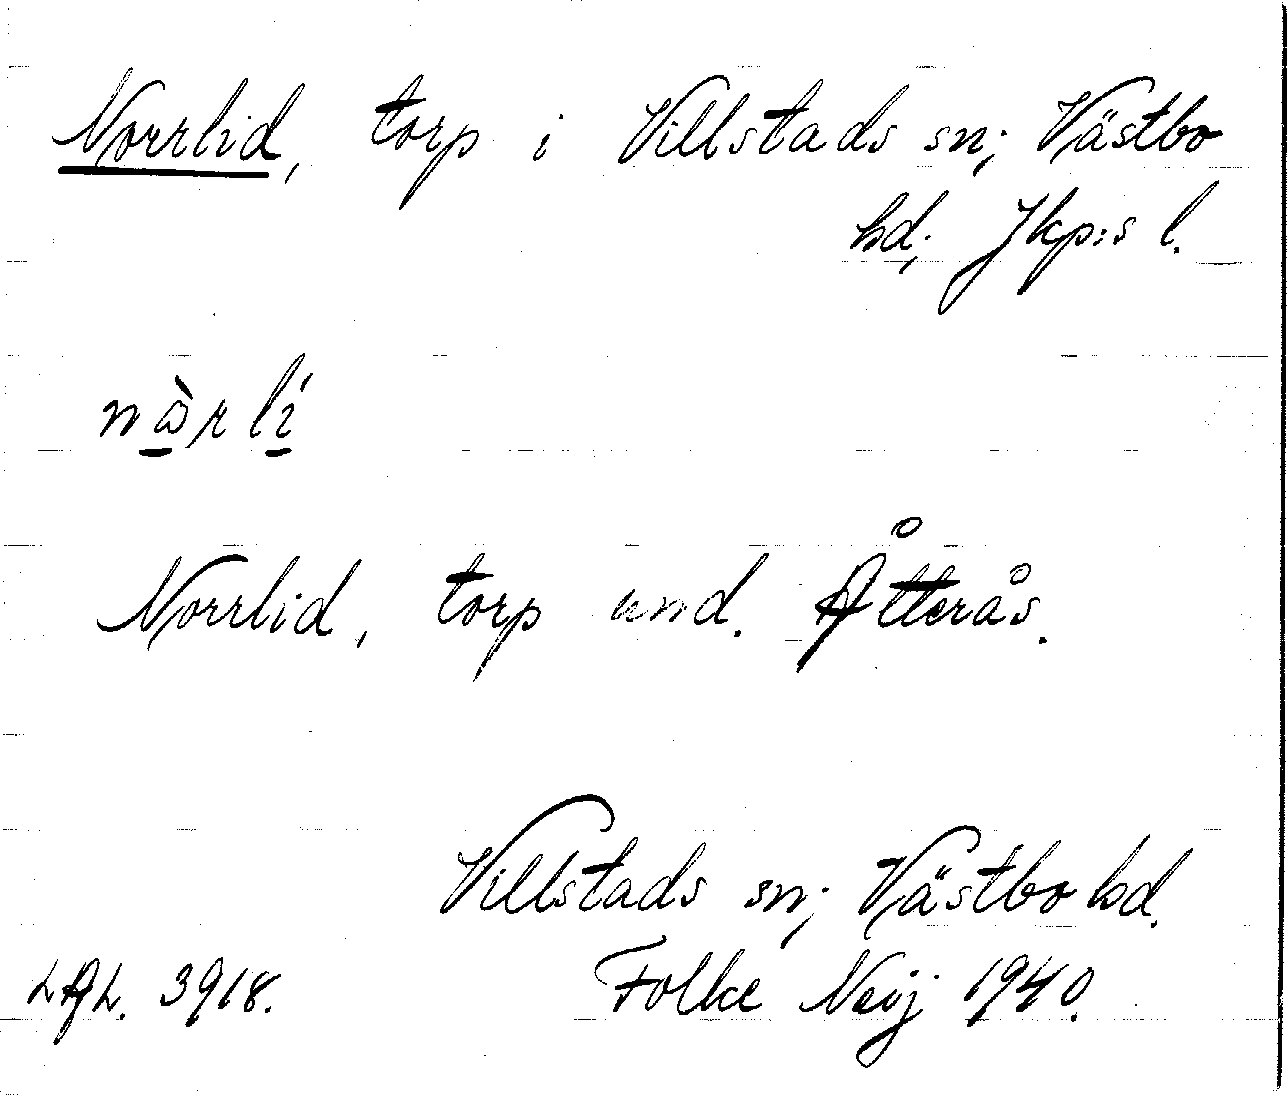 Norrlid, torp i Villstads sn; Västbo
hd; Jkp:s l.
nàrlí
Norrlid, torp und. Åtterås.
Villstads sn; Västbo hd.
LAL. 3918. Folke Neij 1940.